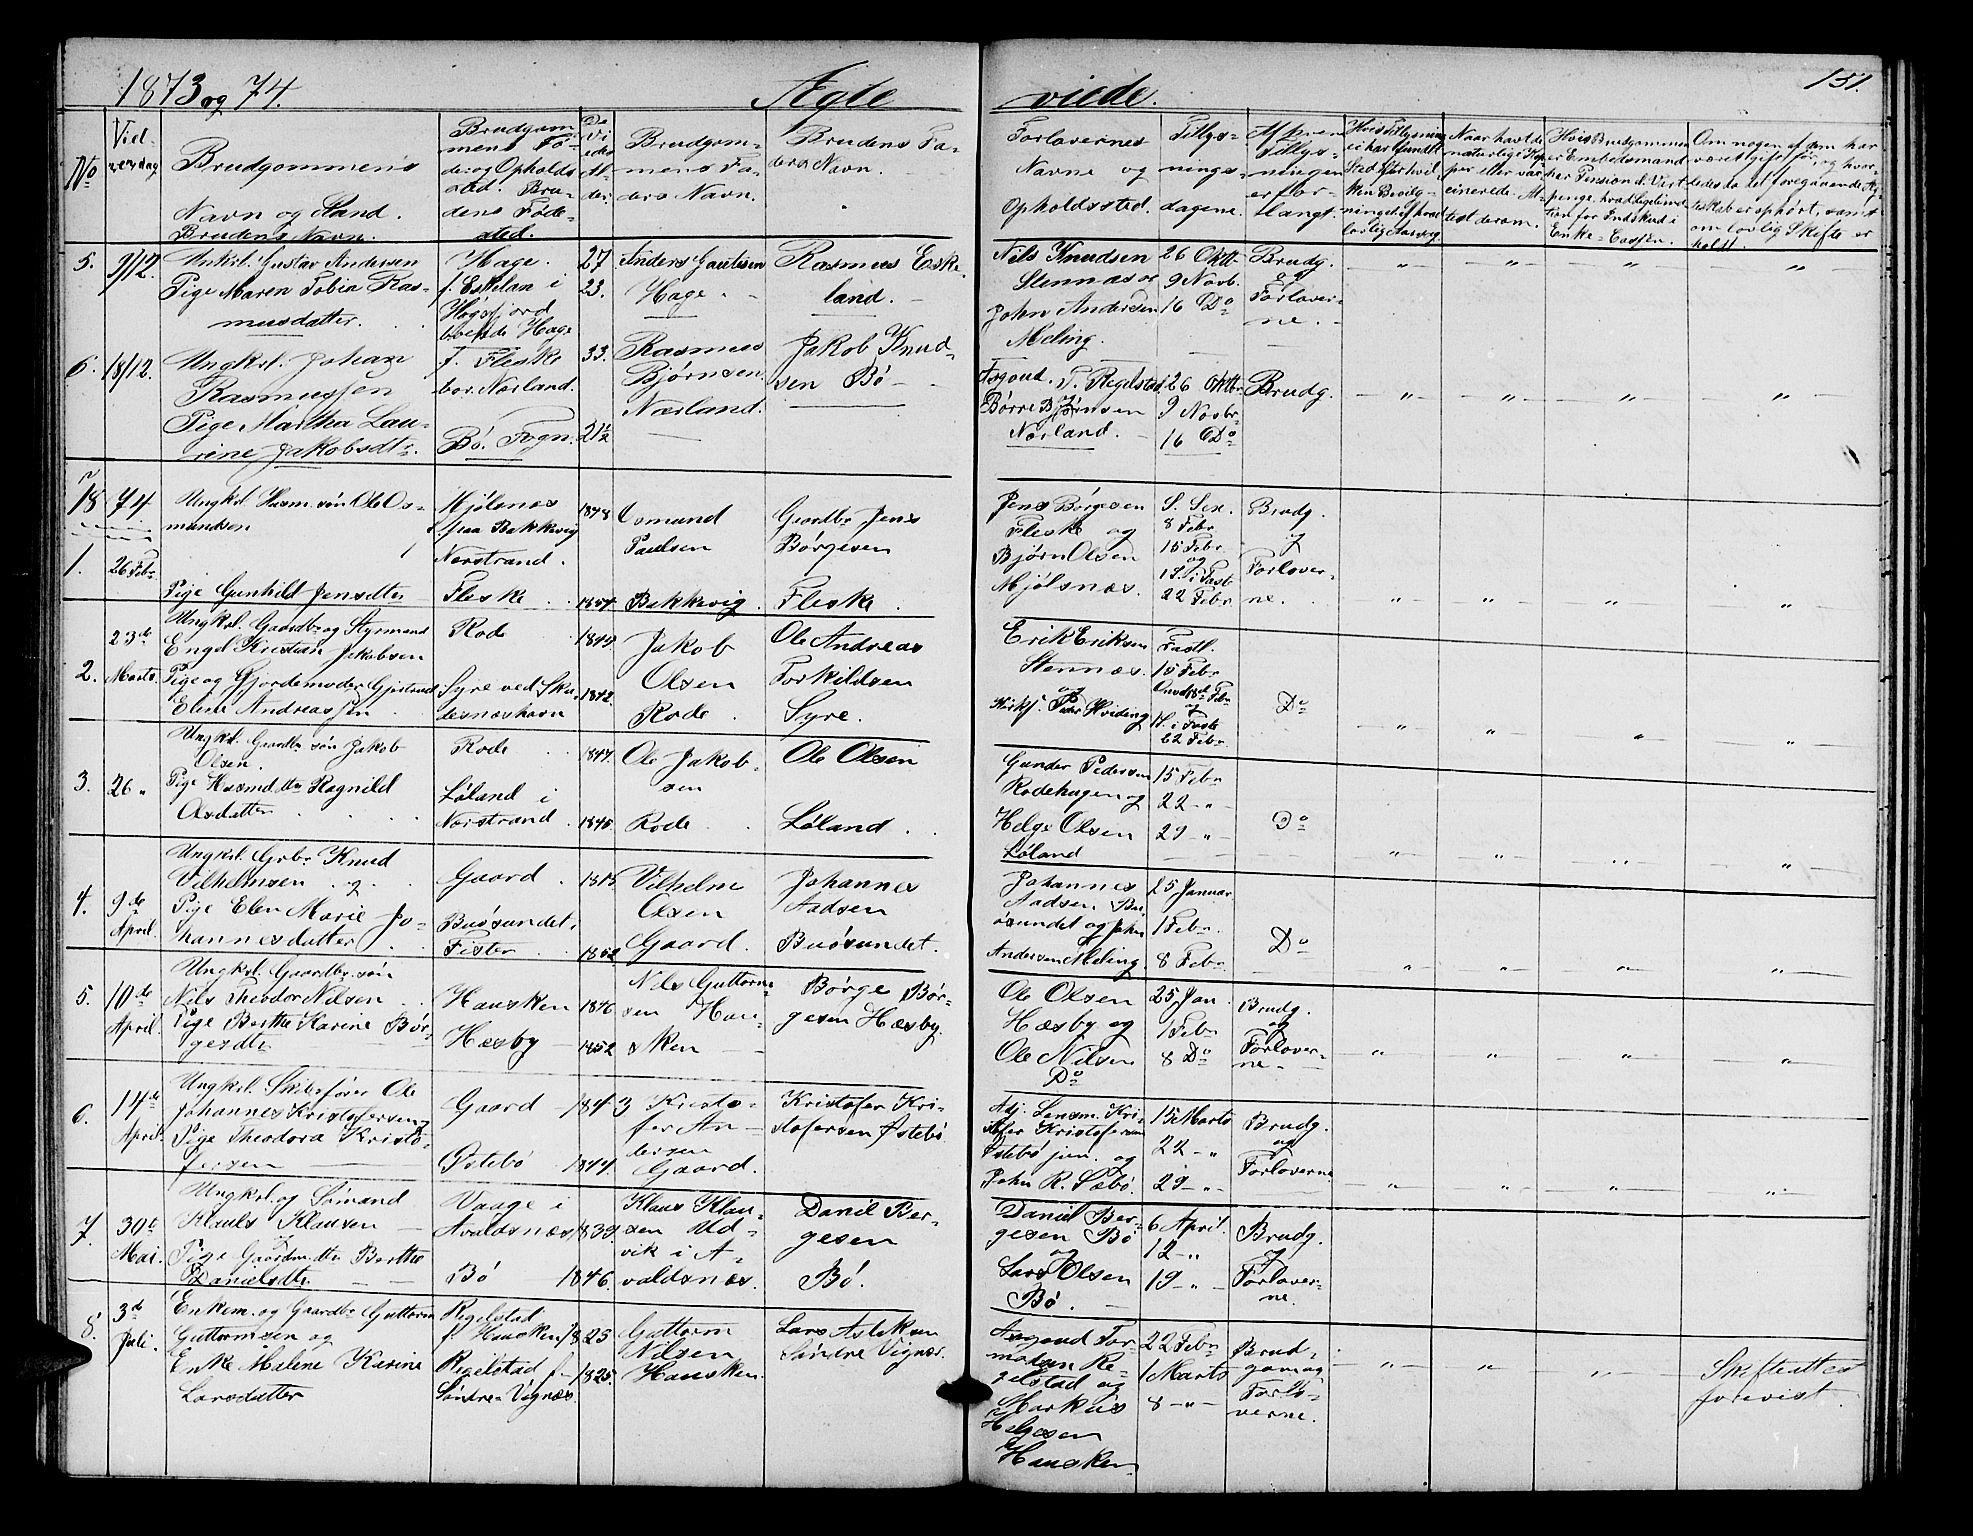 1873 og 74.
Ægte
viede.
151.
No
Viel-
sesdag
Brudgommens
Navn og Stand.
Brudens Navn.
Brudgom
mens Fø-
de og Opholds
sted. Bru-
dens Føde-
sted.
De
Vi
edes
Al-
der.
Brudgom-
mens Fa-
ders Navn.
Brudens Fa-
ders Navn.
Forlovernes
Navne og
Opholdssted.
Tillys-
nings-
dagene.
Af hvem
Tillys-
ningen
er for-
langt.
5.
3/12.
Unkrl. Gustav Andersen
Pige Maren Tobia Ras-
musdatter.
Hage.
f. Eskelan i
Høgsfjord
boende Hage
27
23.
Anders Gautesen
Hage
Rasmus Eske-
land.
Nils Knudsen
Stennæs og
John Andersen
Meling.
26 Oktb.
9 Novb.
16 Do
Brudg.
og
Forlover-
ne.
6.
18/12.
Ungkrl. Johan
Rasmussen
Pige Martha Lau-
rine Jakobsdt.
f. Fleske
bor. Norland.
Bø. Fogn.
33.
21½
Rasmus
Bjørnsen
Nærland.
Jakob Knud-
sen Bø
Asgoud. T. Regelstad
og
Børre Bjørnsen
Norland.
26 Oktbr.
9 Novbr.
16 Do
Brudg.
18 74
1.
26 Febr.
Ungkrl. Husm. søn Ole Os-
mundsen
Pige Gunhild Jensdtter
Mjølsnes
f. paa Bakkevig
Nerstrand.
Fleske
1848
1854
Osmund
Paulsen
Bakkevig.
Gaardbr. Jens
Børgesen
Fleske.
Jens Børgesen
Fleske og
Bjørn Olsen
Mjølsnæs.
S. Sex.
8 Febr.
15 Febr.
og
1 S. i Fast
22 Febr.
Brudg.
og
Forlover-
ne.
2.
23de
Marts.
Ungkrl. Gaardbr. og Styrmand
Engel Kristian Jakobsen
Pige og Gjordemoder Gjertrud
Eline Andreassen
Rode
Syre ved Sku-
desnæshavn
1849
1842.
Jakob
Olsen
Rode.
Ole Andreas
Torkildsen
Syre.
Erik Eriksen
Stennæs.
og
Kirks. Peder Hviding
Fastl.
15 Febr
Onsd. 18de Febr
og
1 S. i Faste
22 Febr.
Do
3.
26 "
Ungkrl. Gaardbr. søn Jakob
Olsen.
Pige Husmdtter Ragnild
Olsdatter
Rode
Løland i
Nerstrand.
1847.
1845.
Ole Jakob-
sen
Rode.
Ole Olsen
Løland.
Gunder Pedersen
Rodehagen og
Helge Olsen
Løland
15 Febr
22 - "
29 - "
Do
4.
9de
April.
Ungkrl. Grbr. Knud
Vilhelmsen
Pige Elen Marie Jo-
hannesdatter
Gaard.
Buøsundet.
Fister
1815
1852
Vilhelm
Olsen
Gaard.
Johannes
Aadsen
Buøsundet.
Johannes
Aadsen Bu-
øsundet og John
Andersen Meling.
25 Januar
1 Febr.
8 Febr.
Do
5.
10de
April.
Ungkrl. Gaardbr. søn
Nils Theodor Nilsen
Pige Berthe Karine Bør-
gesdtr
Hausken
Hæsby
1846
1852
Nils Guttorm-
sen Hau-
sken
Børge Bør-
gesen Hæsby.
Ole Olsen
Hæsby og
Ole Nilsen
Do
25 Jan.
1 Febr.
8 Do
Brudg.
og
Forlover-
ne.
6.
14de
April.
Ungkrl. Skibsfører Ole
Johannes Kristofersen
Pige Theodora Kristo-
fersen
Gaard
Østebø
1843
1844.
Kristo-
fer An-
dersen
Gaard.
Kristofer Kri-
stofersen Østebø
Adj. Lensm. Kri-
stofer Kristofersen
Østebø jun. og
John R. Sæbø.
15 Marts
22 - "
29 - "
Brudg.
og
Forloverne
7.
30te
Mai.
Ungkrl. og Sømand
Klaus Klausen
Pige Gaardm. dtter Berthe
Danielsdtr
Vaage i
Avaldsnæs
Bø
1839
1846.
Klaus Klau-
sen Ud-
vik i A-
valdsnæs.
Daniel Ber-
gesen
Bø.
Daniel Ber-
gesen Bø
og
Lars Olsen
Bø.
6 April.
12 - "
19 - "
Brudg.
og
Forlover-
ne.
8.
3de
Juli.
Enkem. og Gaardbr. Guttorm
Guttormsen og
Enke Malene Karine
Larsdatter
Regelstad
f. Hausken
Regelstad f.
Søndre Vignæs.
1825
1825.
Guttorm
Nilsen
Hausken
Lars Aslaksen
Søndre Vignæs.
Asgoud Tor-
modsen Re-
gelstad og
Markus
Helgesen
Hausken
22 Febr
1 Marts
8 - "
Brud-
gom og
Forlo-
verne.
Skifteattest
forevist.